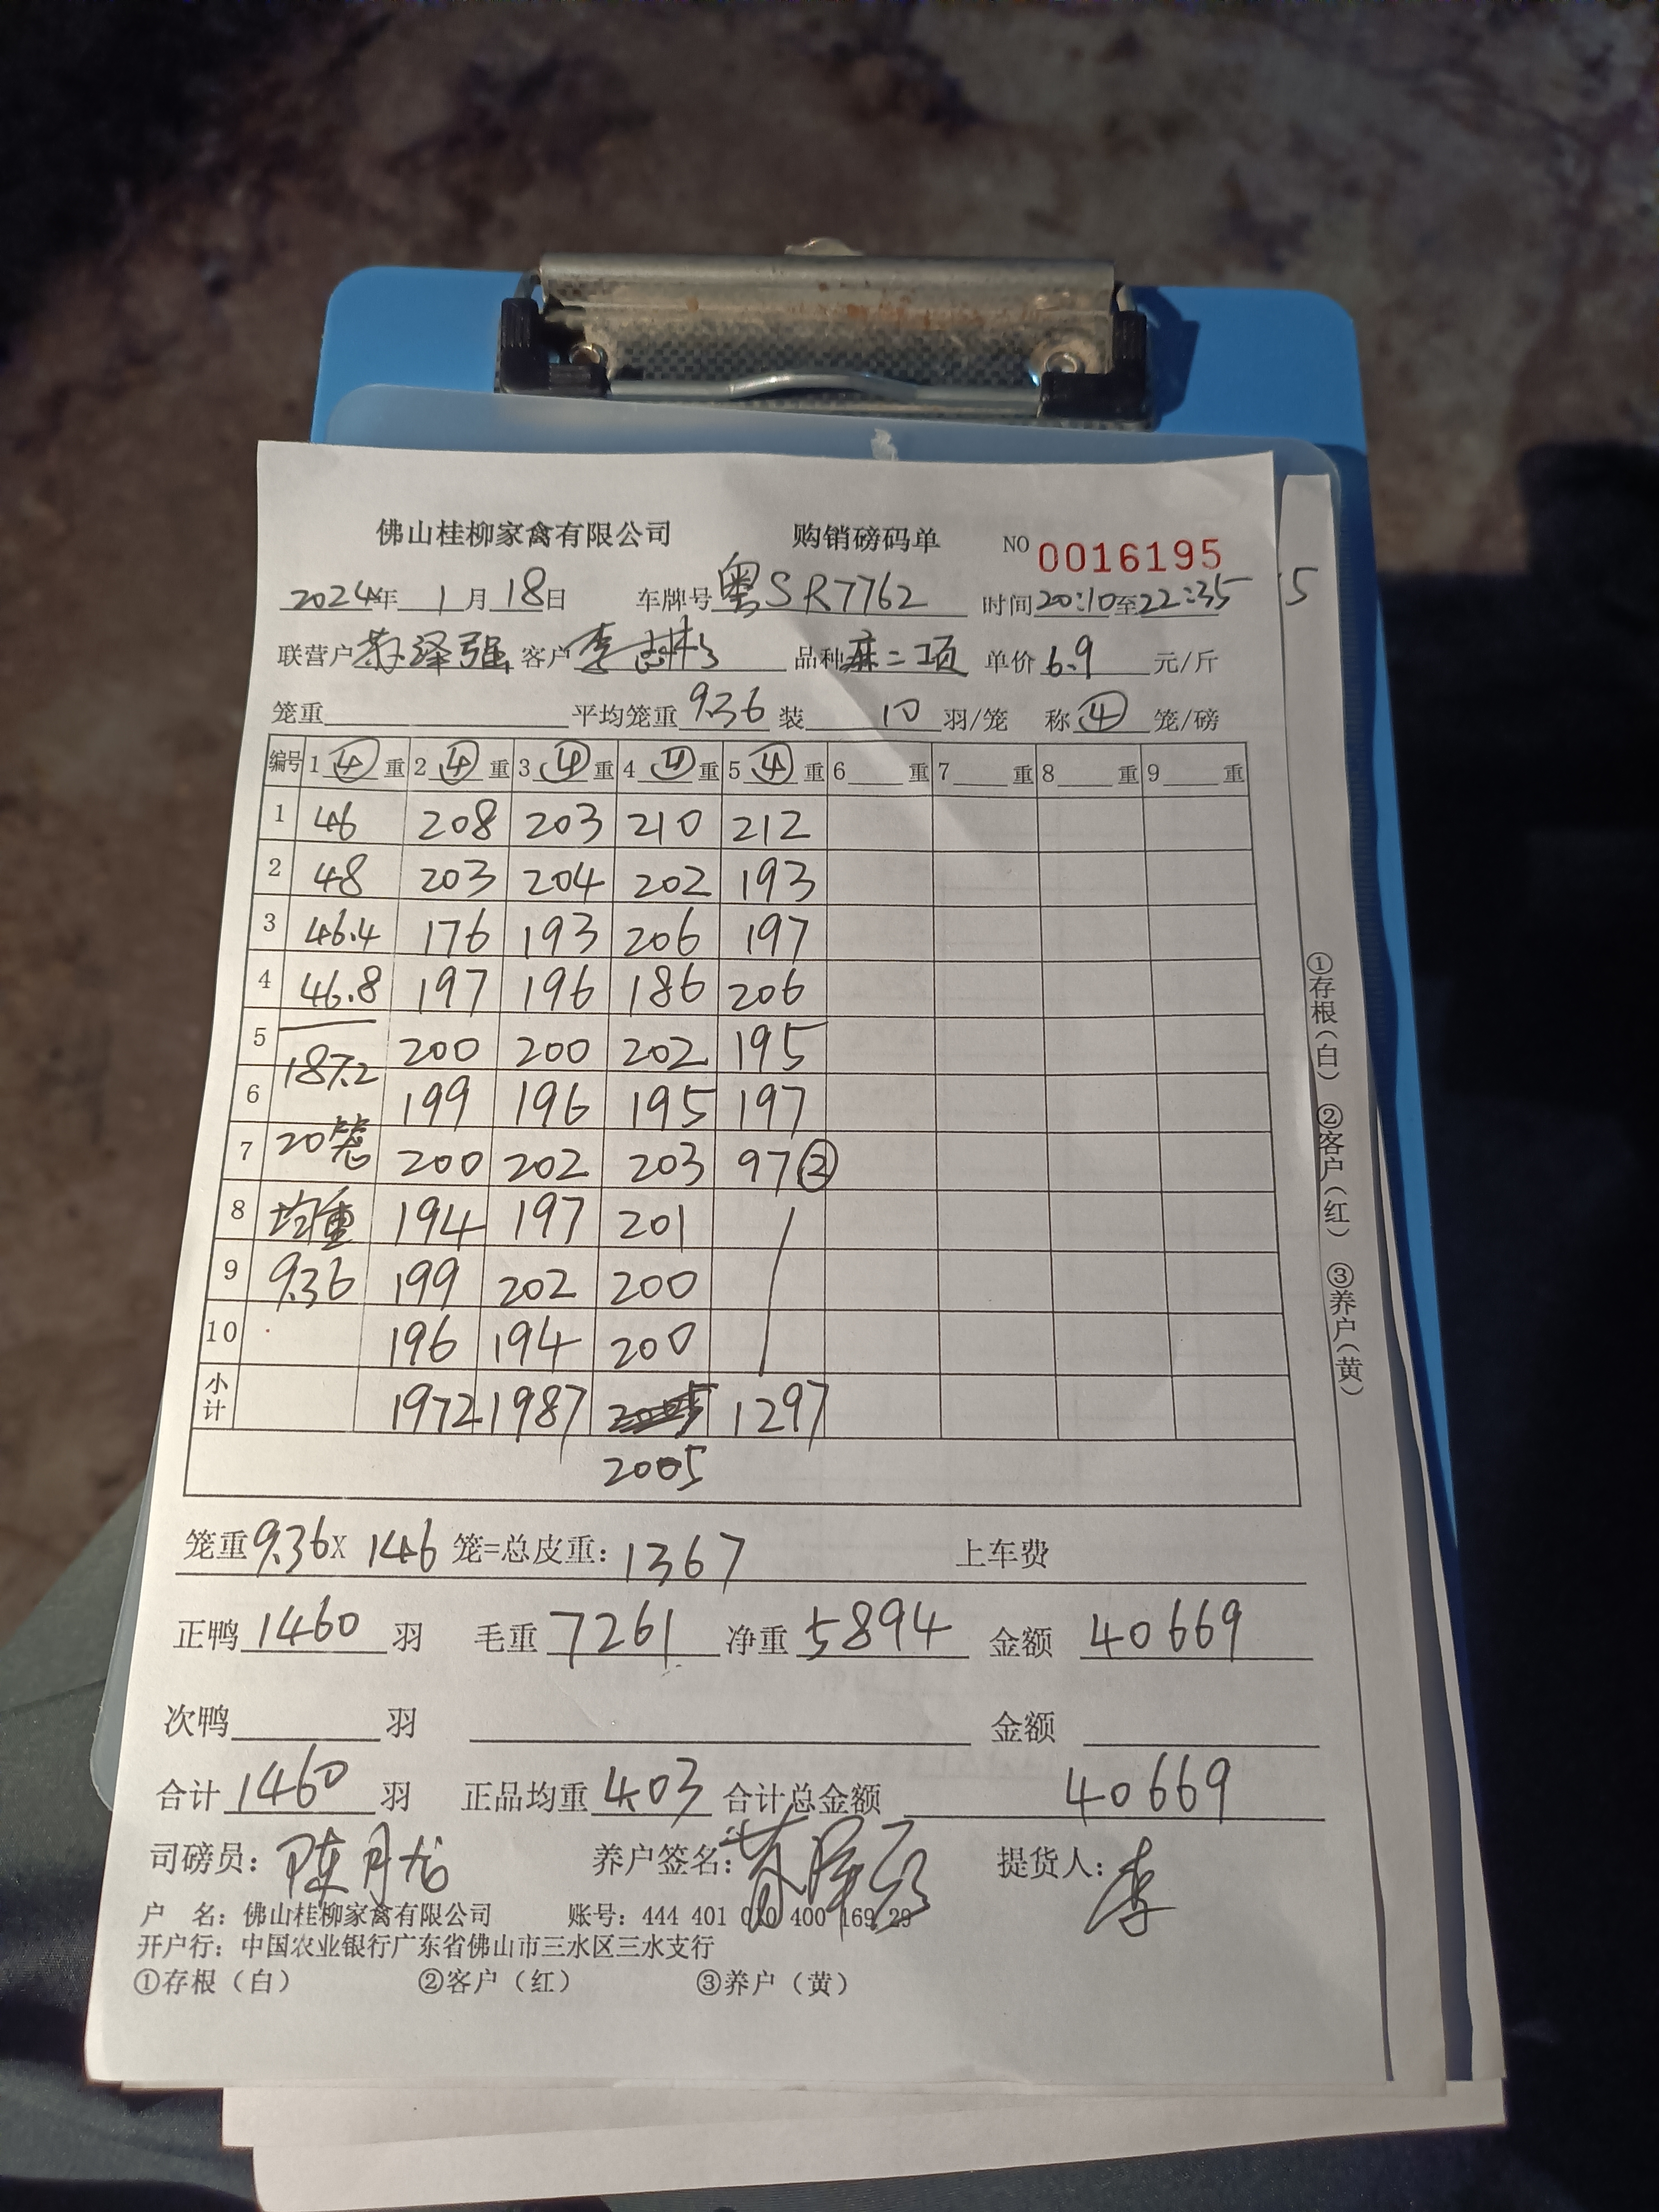 佛山桂柳家禽有限公司 购销磅码单 NO 0016195
2024年 1月 18日 车牌号 粤SR7762 时间 20:10至22:35 5
联营户 泽强 客户 李 品种 麻二项 单价 6.9 元/斤
笼重 平均笼重 9.36 装 10 羽/笼 称 ④ 笼/磅
编号 1 ④ 重 2 ④ 重 3 ④ 重 4 ④ 重 5 ④ 重 6 重 7 重 8 重 9 重
1 46 208 203 210 212
2 48 203 204 202 193
3 46.4 176 193 206 197
4 46.8 197 196 186 206
5 187.2 200 200 202 195
6 199 196 195 197
7 20笼 200 202 203 97②
8 均重 194 197 201
9 9.36 199 202 200
10 196 194 200
小计 1972 1987 1297
2005
笼重 9.36 X 146 笼=总皮重: 1367 上车费
正鸭 1460 羽 毛重 7261 净重 5894 金额 40669
次鸭 羽 金额
合计 1460 羽 正品均重 4.03 合计总金额 40669
司磅员: 陈月 养户签名: 提货人: 李
户 名: 佛山桂柳家禽有限公司 账号: 444 401 010 400 169 29
开户行: 中国农业银行广东省佛山市三水区三水支行
①存根（白） ②客户（红） ③养户（黄）
①存根（白） ②客户（红） ③养户（黄）